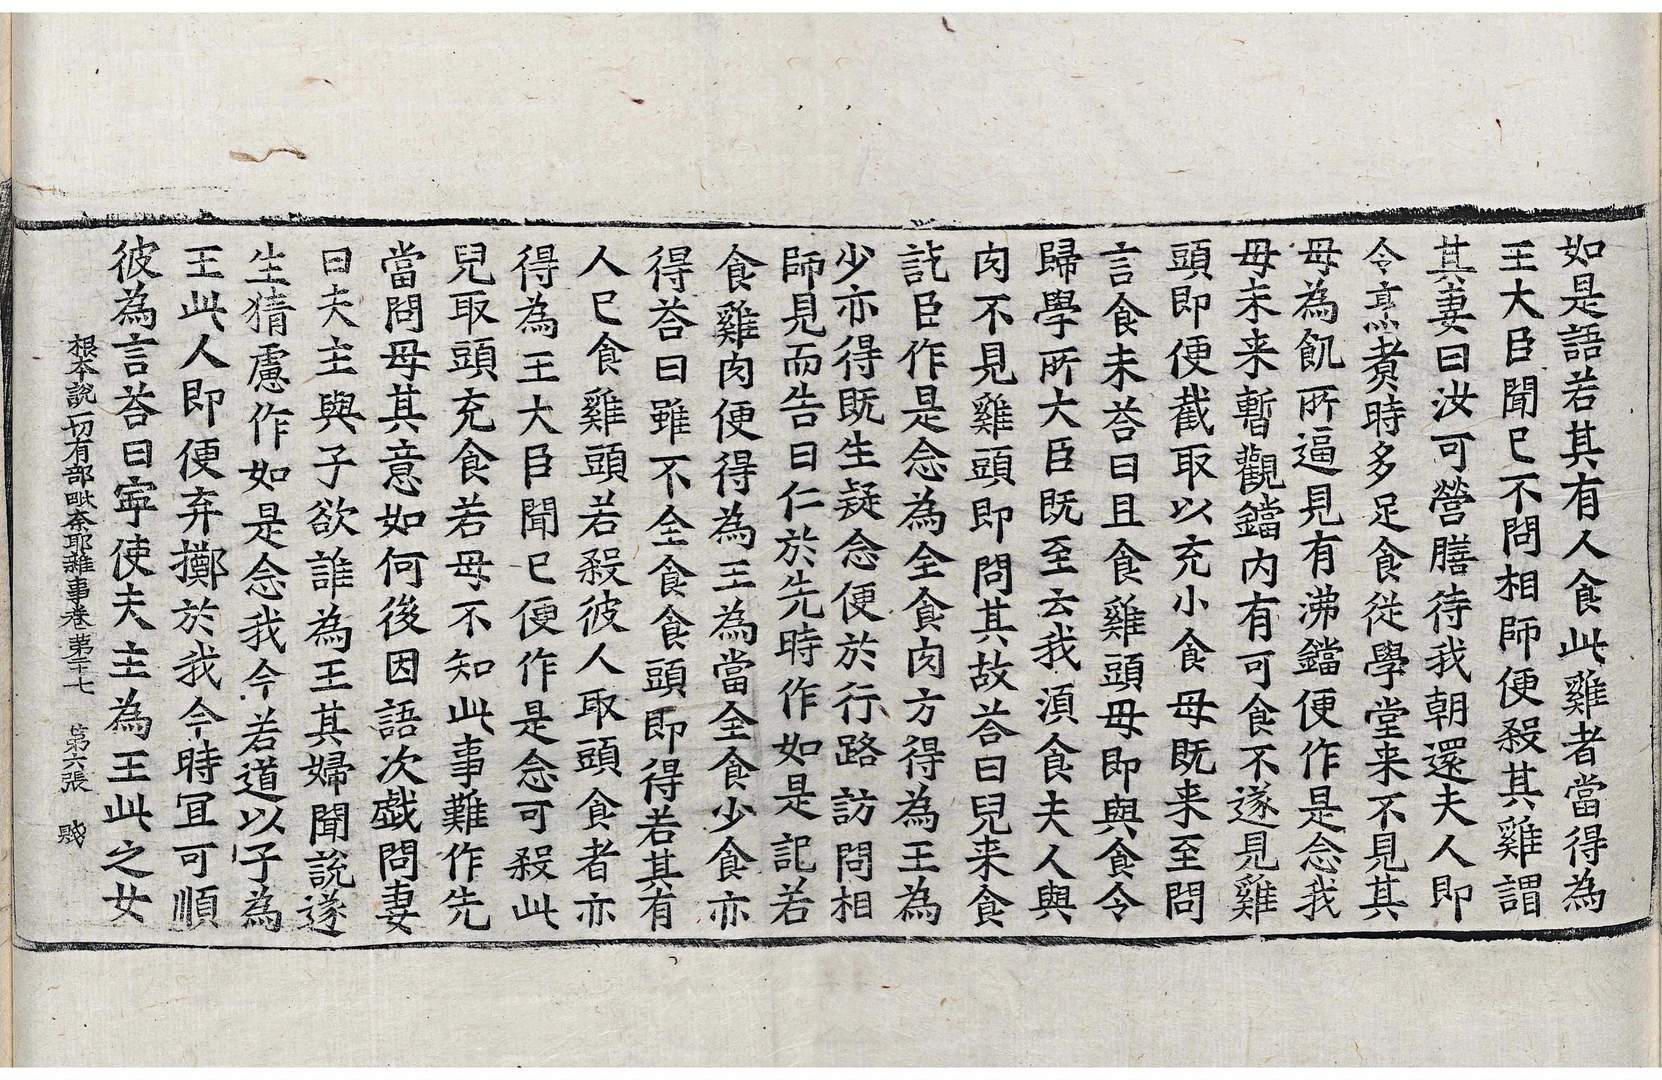 如是語若其有人食此雞者當得為
王大臣聞已不問相師便殺其雞謂
其妻曰汝可營膳待我朝還夫人即
令烹煮時多足食從學堂来不見其
母為飢所逼見有沸鐺便作是念我
母未来暫觀鐺內有可食不遂見雞
頭即便截取以充小食母既来至問
言食未荅曰且食雞頭母即與食令
歸學所大臣既至云我湏食夫人與
肉不見雞頭即問其故荅曰兒来食
訖臣作是念為全食肉方得為王為
少亦得既生疑念便於行路訪問相
師見而告曰仁於先時作如是記若
食雞肉便得為王為當全食少食亦
得荅曰雖不全食食頭即得若其有
人已食雞頭若殺彼人取頭食者亦
得為王大臣聞已便作是念可殺此
兒取頭充食若母不知此事難作先
當問母其意如何後因語次戲問妻
曰夫主與子欲誰為王其婦聞說遂
生猜慮作如是念我今若道以子為
王此人即便弃擲於我今時冝可順
彼為言荅曰寧使夫主為王此之女
根本說一切有部毗奈耶雜事卷第二十七 第六張 賤